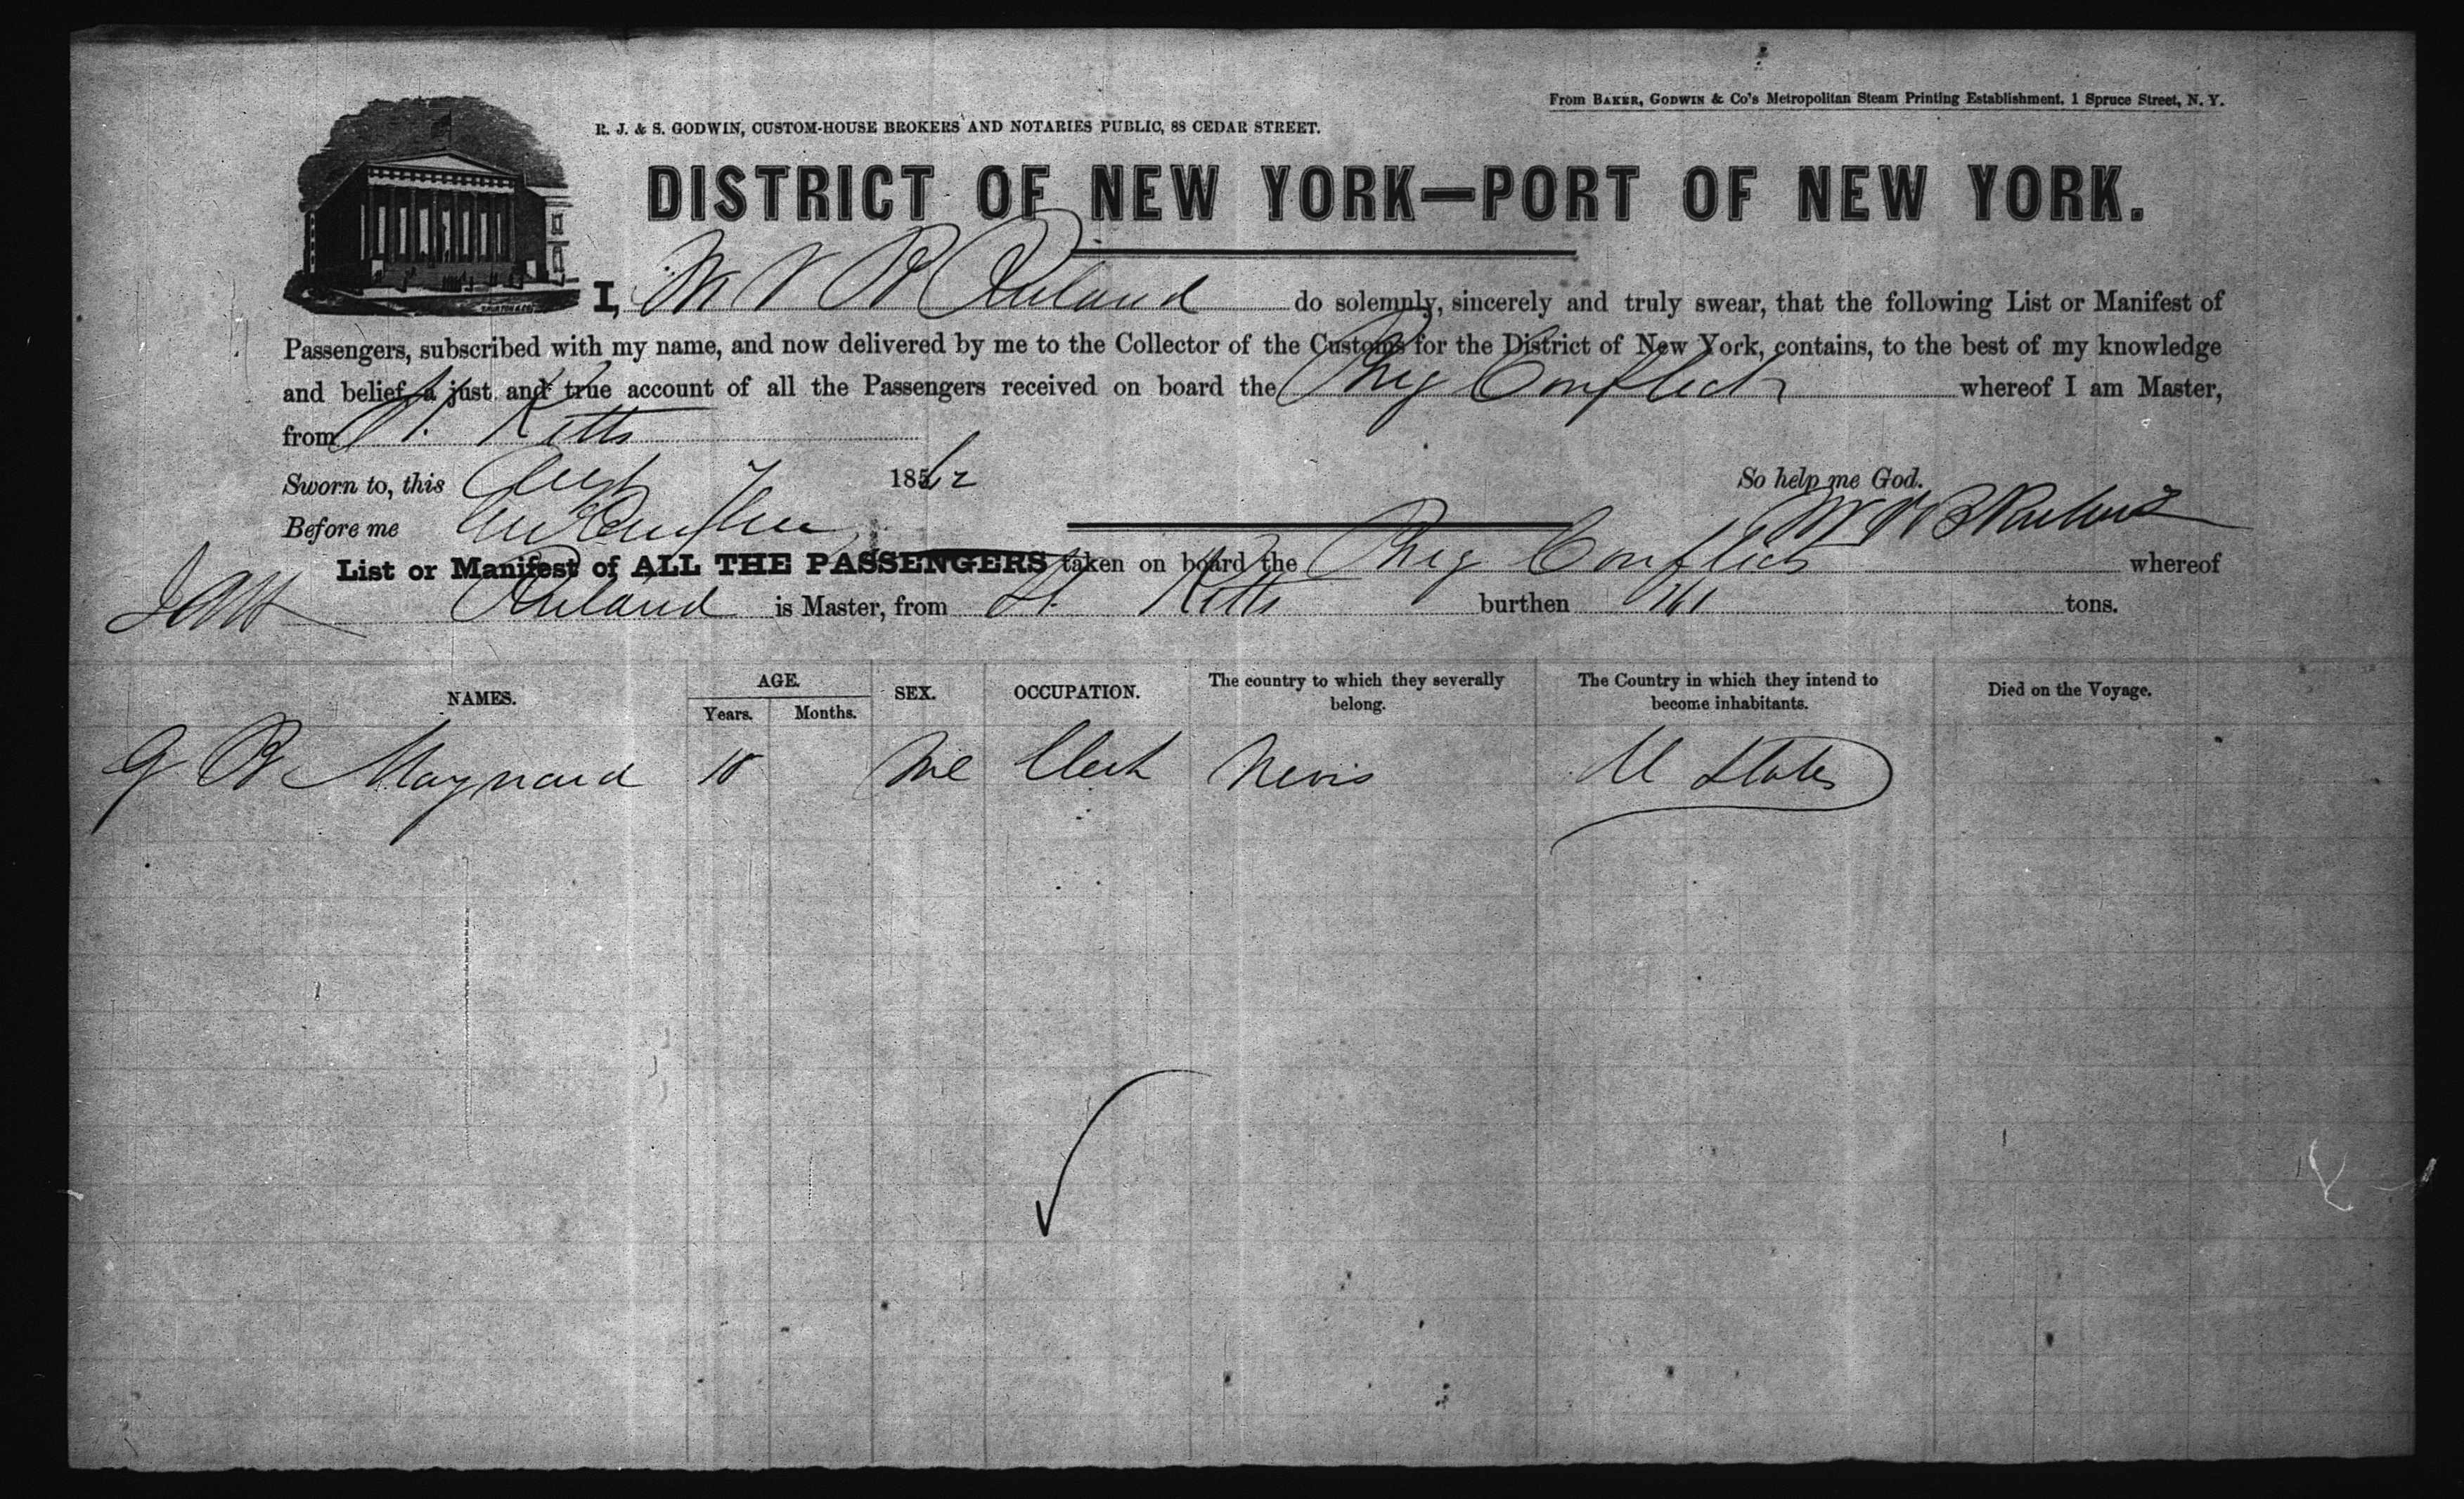 From BAKER, GODWIN & Co's Metropolitan Steam Printing Establishment, 1 Spruce Street, N. Y.
R. J. & S. GODWIN, CUSTOM-HOUSE BROKERS AND NOTARIES PUBLIC, 88 CEDAR STREET.
DISTRICT OF NEW YORK—PORT OF NEW YORK.
I, M V B Ruland do solemnly, sincerely and truly swear, that the following List or Manifest of
Passengers, subscribed with my name, and now delivered by me to the Collector of the Customs for the District of New York, contains, to the best of my knowledge
and belief, a just and true account of all the Passengers received on board the Brig Conflict whereof I am Master,
from St. Kitts
Sworn to, this Augt 7 1862 So help me God.
Before me M V B Ruland
List or Manifest of ALL THE PASSENGERS taken on board the Brig Conflict whereof
Ruland is Master, from St. Kitts burthen tons.
NAMES. AGE. SEX. OCCUPATION. The country to which they severally belong. The Country in which they intend to become inhabitants. Died on the Voyage.
Years. Months.
G B Maynard 18 Me Clerk Nevis U States